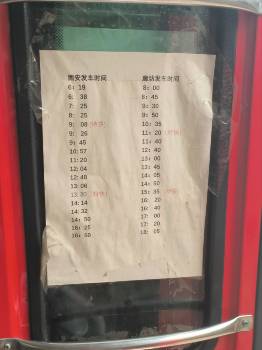 固安发车时间 廊坊发车时间
6: 19 8: 00
6: 38 8: 45
7: 25 9: 30
8: 25 9: 50
9: 08 10: 35
9: 26 11: 20
9: 45 11: 40
10:57 12: 40
11:20 13: 00
12:04 13: 45
12:48 14: 05
13:06 14: 50
13:30 15: 35
14:14 16: 20
14:32 16: 40
14: 50 17: 00
16:25 17: 20
16:50 18: 05